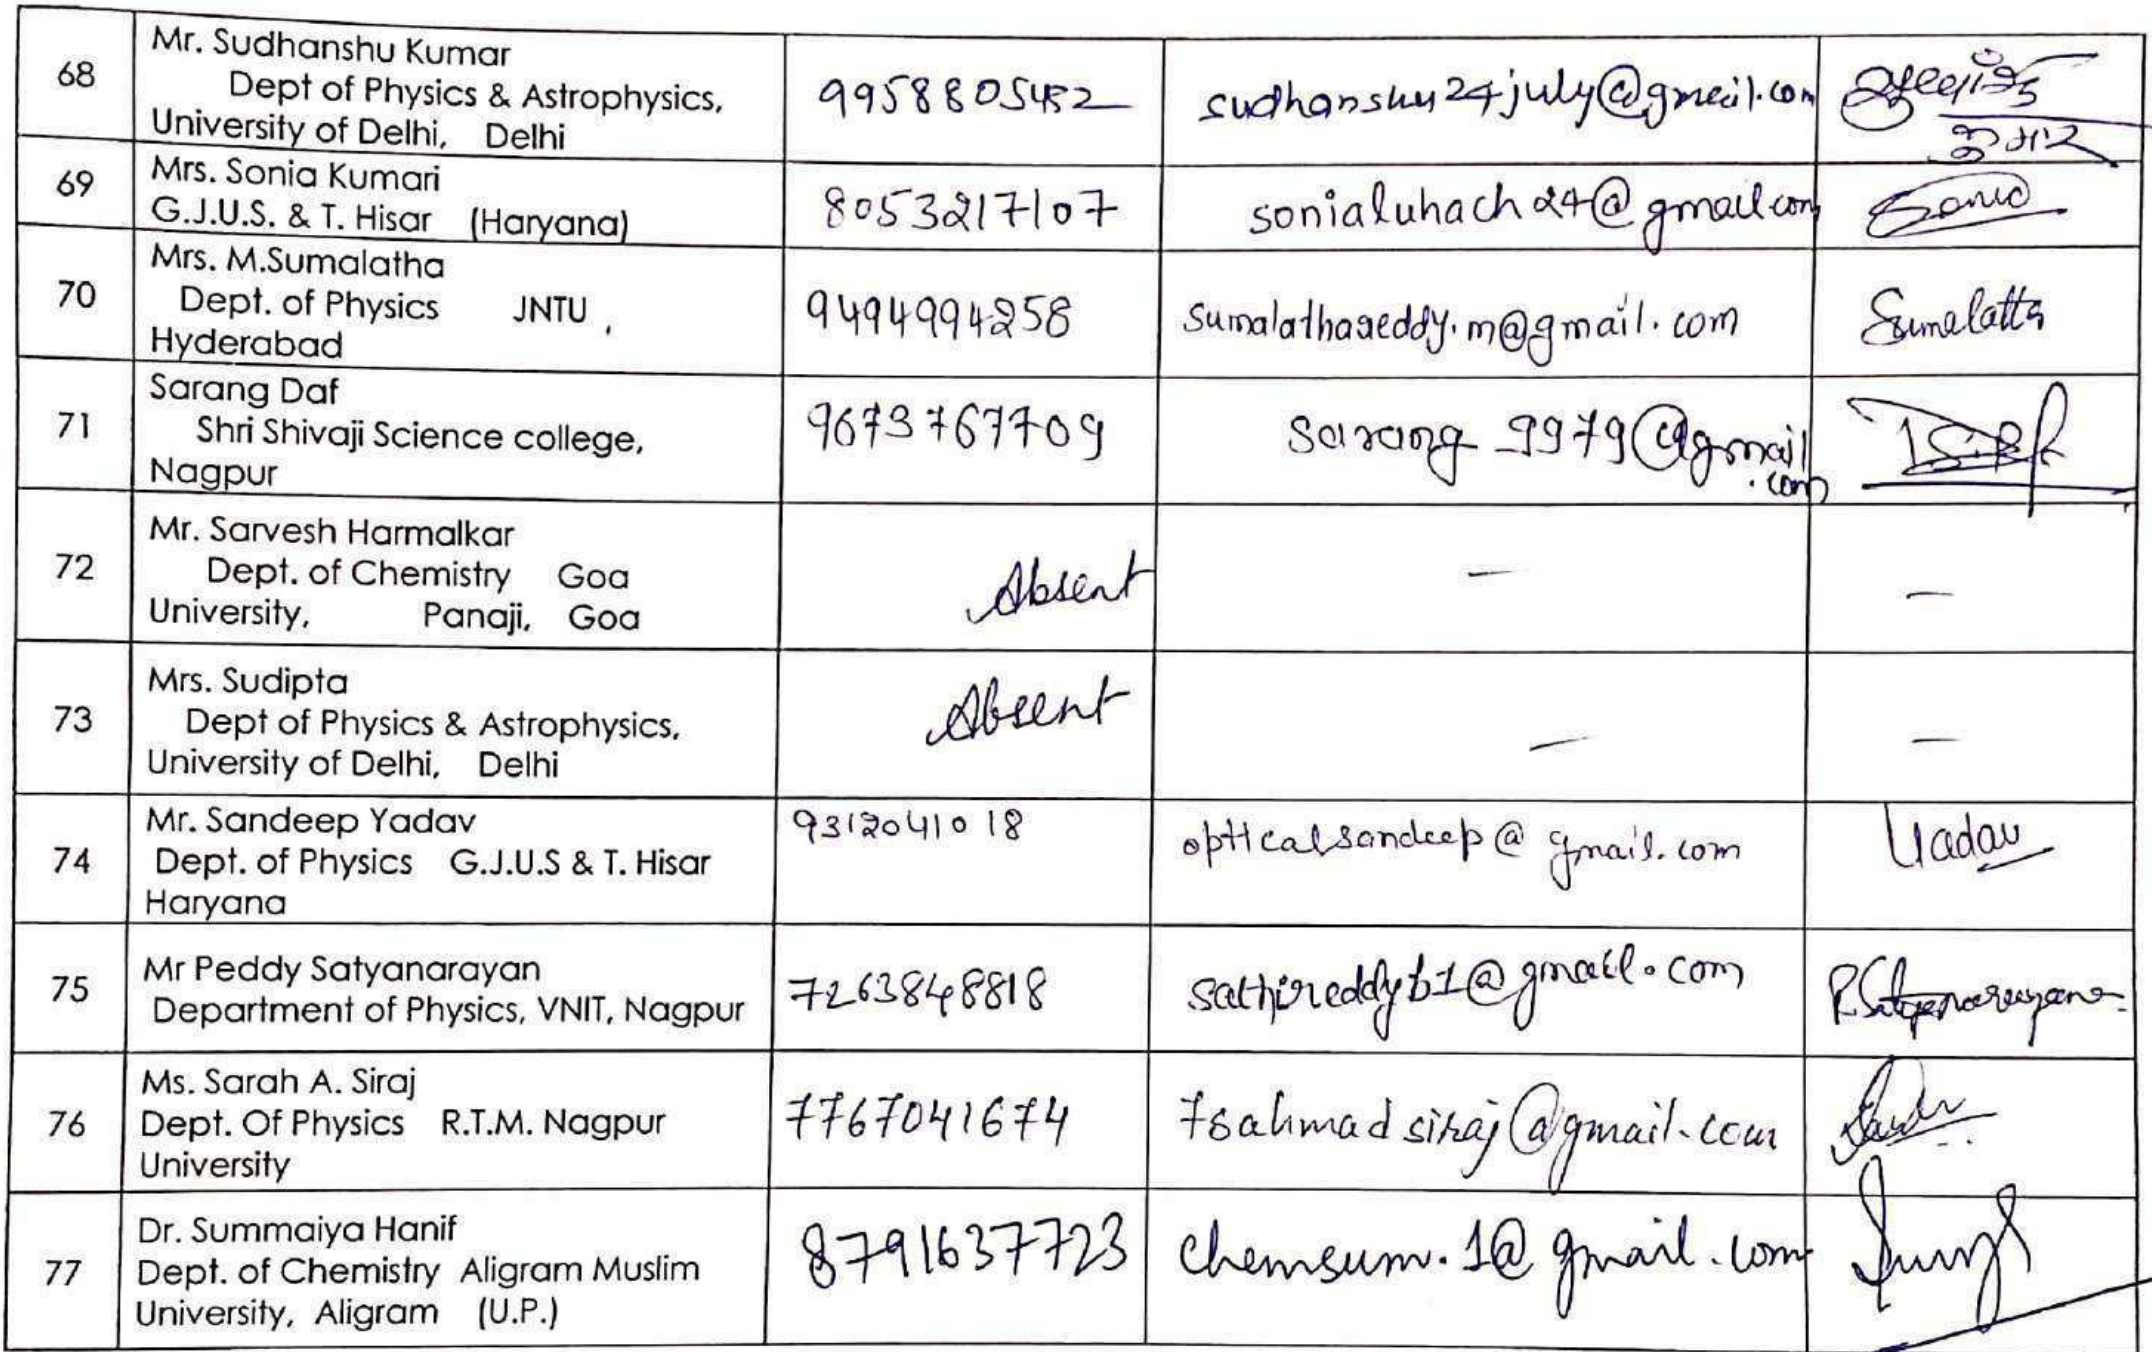 68
Mr. Sudhanshu Kumar
Dept of Physics & Astrophysics,
University of Delhi, Delhi
9958805452
sudhanshu24july@gmail.com
कुमार
69
Mrs. Sonia Kumari
G.J.U.S. & T. Hisar (Haryana)
8053217107
sonialuhach24@gmail.com
Sonia
70
Mrs. M.Sumalatha
Dept. of Physics JNTU ,
Hyderabad
9494994258
sumalathareddy.m@gmail.com
Sumalatha
71
Sarang Daf
Shri Shivaji Science college,
Nagpur
9673767709
sarang 9979@gmail
.com
72
Mr. Sarvesh Harmalkar
Dept. of Chemistry Goa
University, Panaji, Goa
Absent
–
–
73
Mrs. Sudipta
Dept of Physics & Astrophysics,
University of Delhi, Delhi
Absent
–
–
74
Mr. Sandeep Yadav
Dept. of Physics G.J.U.S & T. Hisar
Haryana
9312041018
opticalsandeep@gmail.com
Yadav
75
Mr Peddy Satyanarayan
Department of Physics, VNIT, Nagpur
7263848818
sathireddyb1@gmail.com
P.Satyanarayana
76
Ms. Sarah A. Siraj
Dept. Of Physics R.T.M. Nagpur
University
7767041674
7sahmadsiraj@gmail.com
77
Dr. Summaiya Hanif
Dept. of Chemistry Aligram Muslim
University, Aligram (U.P.)
8791637723
chemsum.1@gmail.com